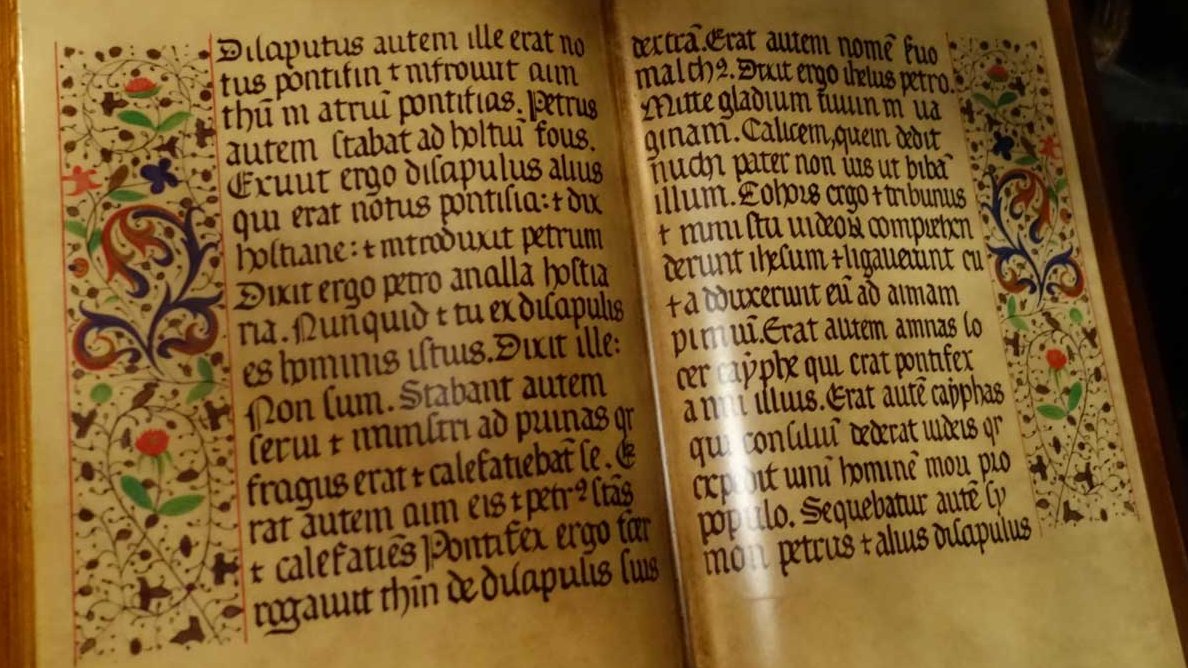 Disciputus autem ille erat no
tus pontifin ⁊ introuuit cum
thũ in atriũ pontificis. Petrus
autem stabat ad hostiũ foris.
Exiuit ergo discipulus alius
qui erat notus pontifici: ⁊ dix
hostiane: ⁊ introduxit petrum
Dixit ergo petro ancilla hostia
ria. Nunquid ⁊ tu ex discipulis
es hominis istius. Dixit ille:
Non sum. Stabant autem
serui ⁊ ministri ad prunas qr
fragus erat ⁊ calefatiebat̃ se. E
rat autem cum eis ⁊ petrꝰ stãs
⁊ calefatiẽs Pontifex ergo
rogauit thñ de discipulis suis
dextrã. Erat autem nomẽ suo
malchꝰ. Dixit ergo ihesus petro.
Mitte gladium tuum in ua
ginam. Calicem, quem dedit
michi pater non uis ut bibã
illum. Cohors ergo ⁊ tribunus
⁊ ministri uideoꝝ comprehen
derunt ihesum ⁊ ligauerunt eũ
⁊ adduxerunt eũ ad annam
primũ. Erat autem annas so
cer cayphe qui erat pontifex
anni illius. Erat autẽ cayphas
qui consiliũ dederat iudeis qr
expedit unũ hominẽ mori pro
populo. Sequebatur autẽ sy
mon petrus ⁊ alius discipulus